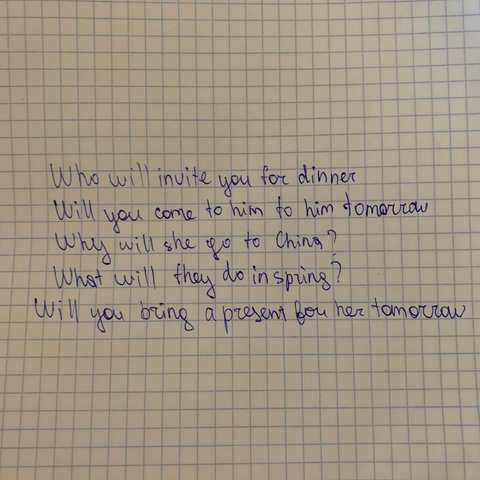 Who will invite you for dinner
Will you come to him to him tomorrow
Why will she go to China?
What will they do in spring?
Will you bring a present for her tomorrow